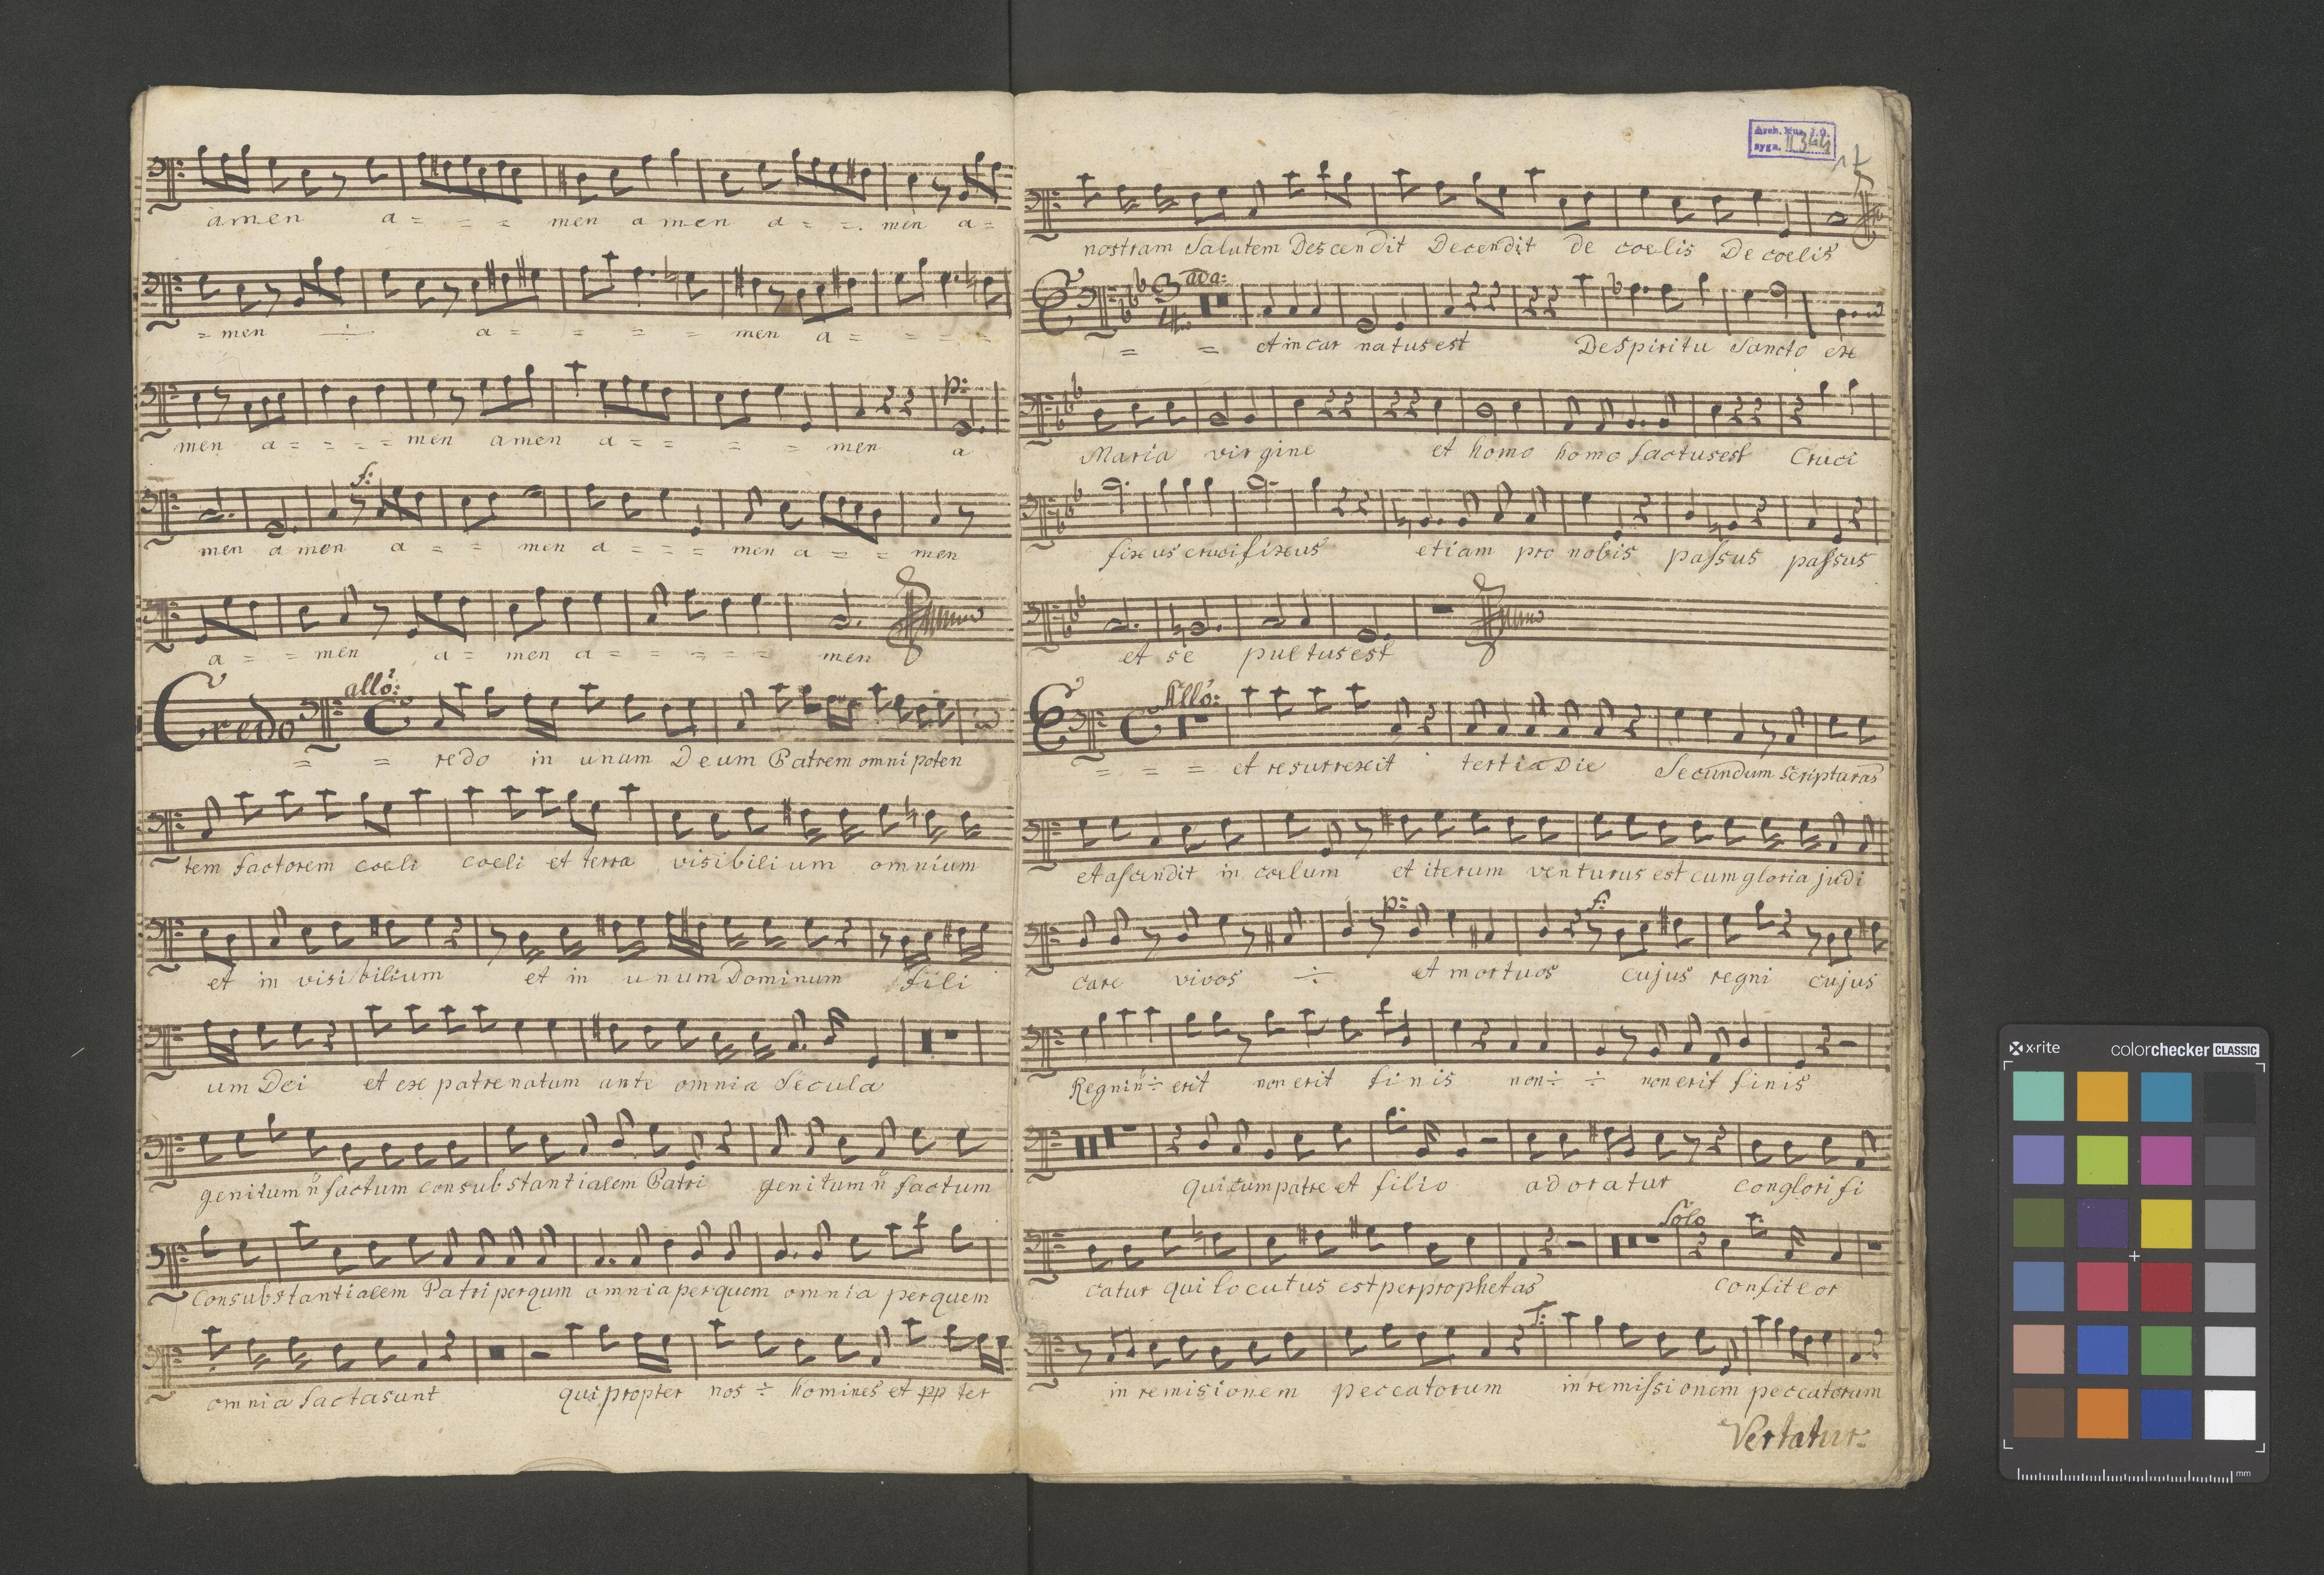 amen a = = = men a men a = = men a =
= men ÷ a = = = = men a = = = =
men a = = = = men amen a = = = = men p: a
f:
men a men a = = men a = = = men a = = men
a = = men a = men a = = = = = men
Credo allo: C
= = redo in unum Deum Patrem omnipoten
tem factorem coeli coeli et terra visibilium omnium
et in visibilium et in unum Dominum fili
um Dei et ex patre natum ante omnia Secula
genitum n̄ factum consubstantialem Patri genitum n̄ factum
consubstantialem Patri per qum omnia per quem omnia per quem
omnia facta sunt qui propter nos ÷ homines et ppter
Arch. Mus. J.G.
sygn. II 344
17
nostram Salutem Descendit Decendit de coelis De coelis
E 3 4 ava:
= = et incarnatus est De Spiritu Sancto ex
Maria virgine et homo homo factus est Cruci
fixus crucifixus etiam pro nobis paſsus paſsus
et se pultus est
E Allo: C
= = = et resurrexit tertia Die Secundum scripturas
et ascendit in coelum et iterum venturus est cum gloria judi
p: f:
care vivos ÷ et mortuos cujus regni cujus
Regni n̄ ÷ erit non erit finis non ÷ ÷ non erit finis
qui cum patre et filio adoratur conglorifi
Solo
catur qui locutus est per prophetas confiteor
T:
in remisionem peccatorum in remiſsionem peccatorum
Vertatur:
x-rite colorchecker CLASSIC
mm